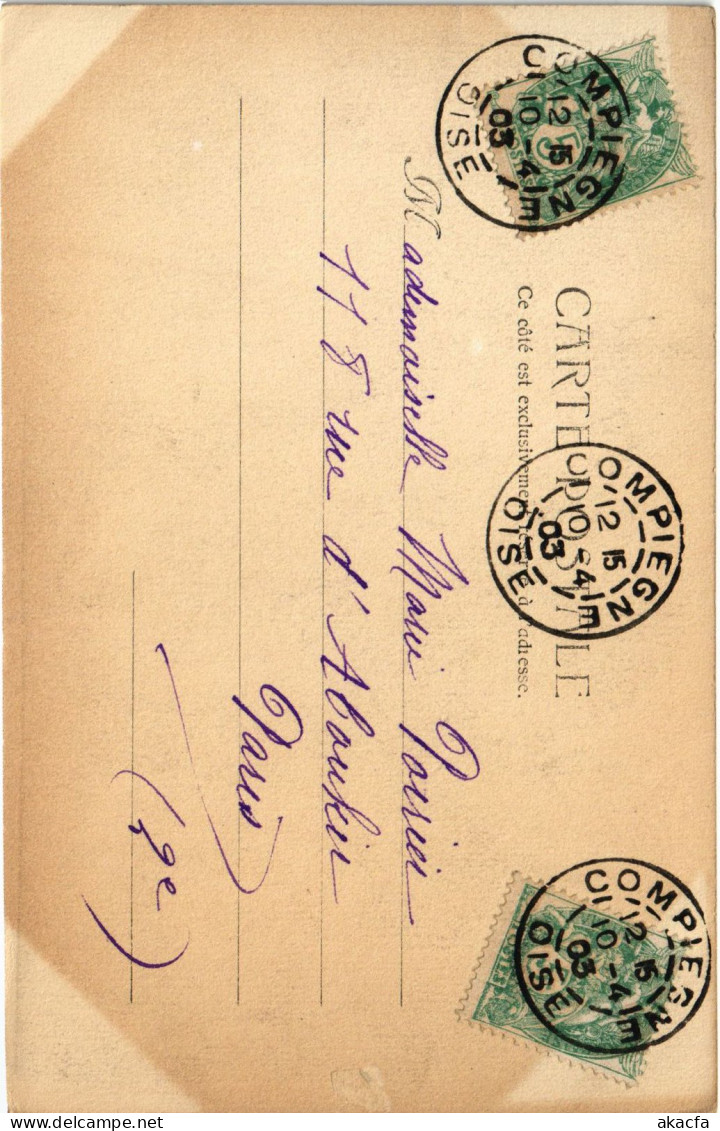 CARTE POSTALE
Ce côté est exclusivement réservé à l'adresse.
COMPIEGNE
12 15
10 - 4
03
OISE
COMPIEGNE
12 15
10 - 4
03
OISE
COMPIEGNE
12 15
10 - 4
03
OISE
5
Mademoiselle Marie
118 rue d'Aboukir
Paris
(2e)
www.akacfa.com
akacfa